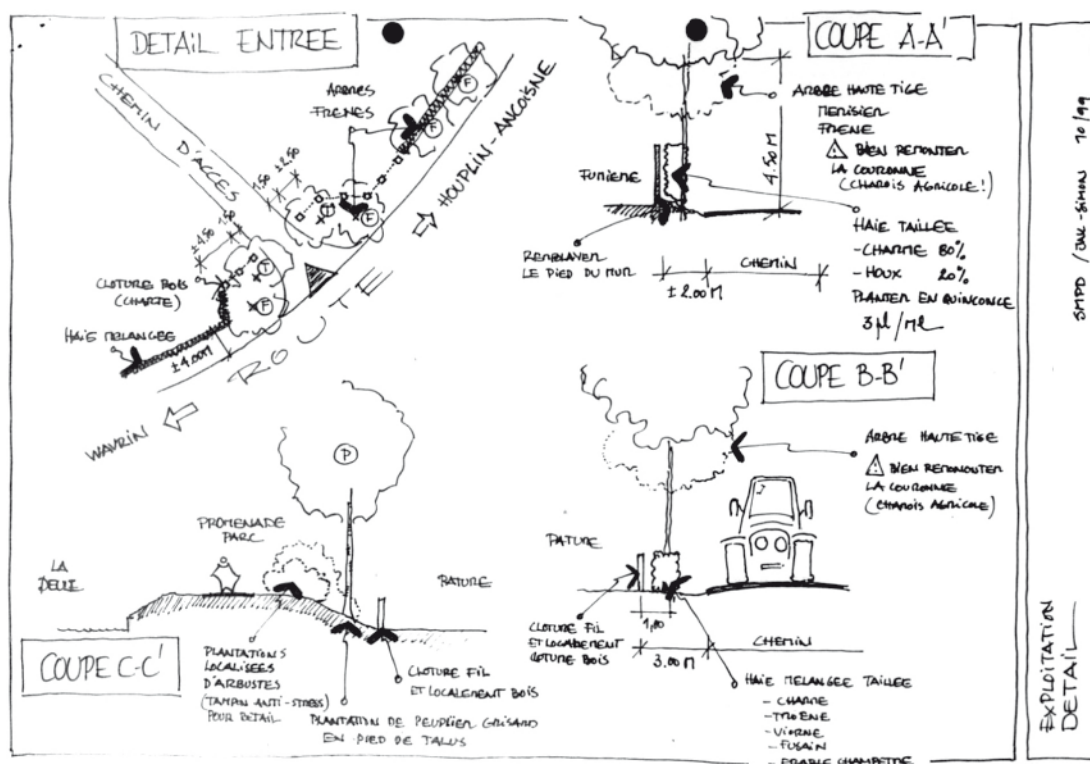 DETAIL ENTREE
CHEMIN
D'ACCES
ARBRES
FRENES
F
F
F
T
F
T
F
1.50
±2.50
±4.50
1.50
HOUPLIN-ANCOISNE
CLOTURE BOIS
(CHARTE)
HAIE MELANGEE
±4.00M
ROUTE
WAVRIN
COUPE A-A'
ARBRE HAUTE TIGE
MERISIER
FRENE
BIEN REMONTER
LA COURONNE
(CHAROIS AGRICOLE!)
4.50 M
FUMIERE
HAIE TAILLEE
-CHARME 80%
-HOUX 20%
PLANTER EN QUINCONCE
3pl/ML
REMBLAYER
LE PIED DU MUR
CHEMIN
±2.00M
COUPE B-B'
ARBRE HAUTE TIGE
BIEN REMONOUTER
LA COURONNE
(CHAROIS AGRICOLE)
PATURE
CLOTURE FIL
ET LOCALEMENT
CLOTURE BOIS
1,00
3.00M
CHEMIN
HAIE MELANGEE TAILLEE
- CHARME
- TROENE
- VIORNE
- FUSAIN
- ERABLE CHAMPETRE
P
PROMENADE
PARC
LA
DEULE
PATURE
COUPE C-C'
PLANTATIONS
LOCALISEES
D'ARBUSTES
(TAMPON ANTI-STRESS)
POUR BETAIL
CLOTURE FIL
ET LOCALEMENT BOIS
PLANTATION DE PEUPLIER GRISARD
EN PIED DE TALUS
10/99
EXPLOITATION
DETAIL